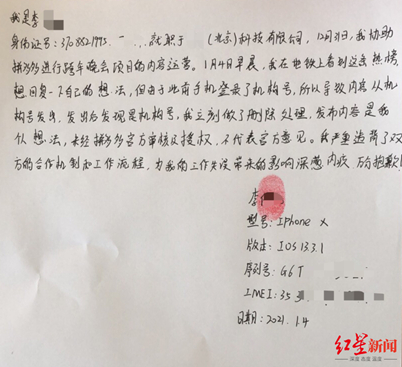 我是李
身份证号：370852199 就职于 （北京）科技有限公司，12月31日，我协助
拼多多进行跨年晚会项目的内容运营。1月4日早晨，我在地铁上看到这条热榜
想回复一下自己的想法，但由于此前手机登录了机构号，所以导致内容从机
构号发出，发出后发现是机构号，我立刻做了删除处理，发布内容是我
个人想法，未经拼多多官方审核及授权，不代表官方意见。我严重违背了双
方的合作机制和工作流程，为我的工作失误带来的影响深感内疚，万分抱歉！
李
型号：IPhone X
版本：IOS 13.3.1
序列号：G6T
IMEI：35
日期：2021.1.4
红星新闻
深度 态度